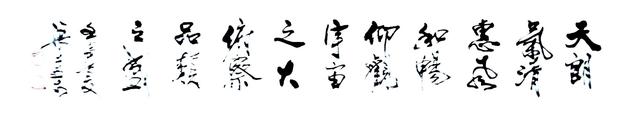 天朗
氣清
惠風
和暢
仰觀
宇宙
之大
俯察
品類
之盛